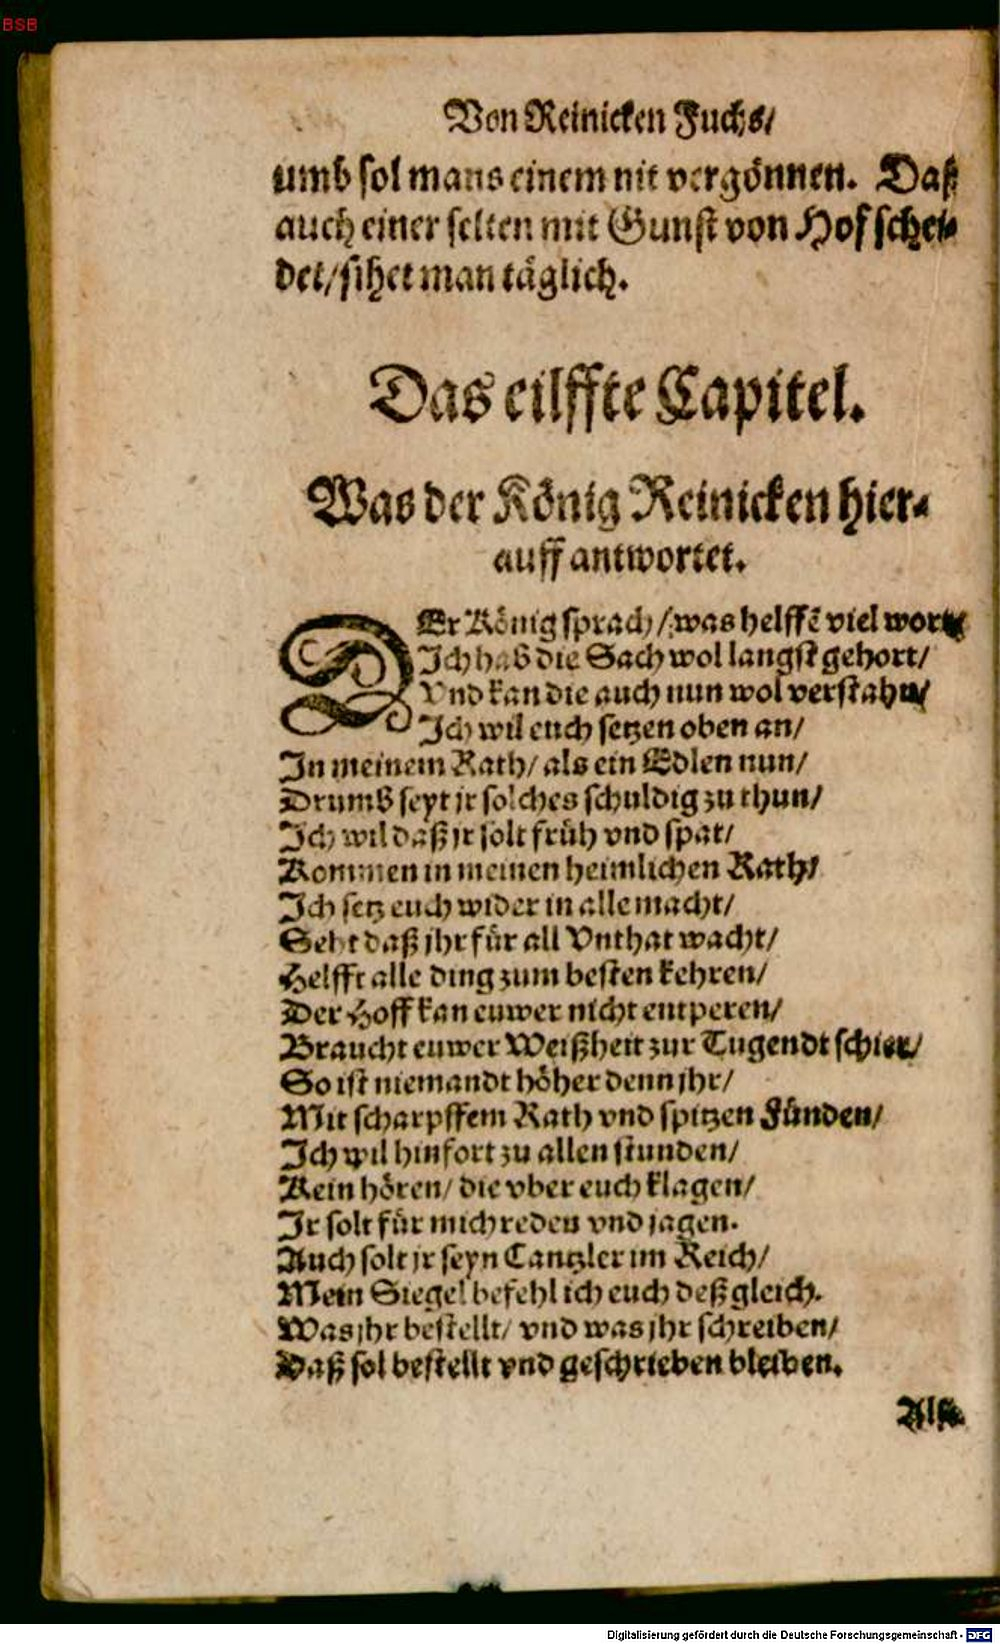 BSB
Von Reinicken Fuchs/
umb sol mans einem nit vergönnen. Daß
auch einer selten mit Gunst von Hof schei-
det/ sihet man täglich.
Das eilffte Capitel.
Was der König Reinicken hier-
auff antwortet.
DEr König sprach/ was helffē viel wort/
Ich hab die Sach wol langst gehort/
Vnd kan die auch nun wol verstahn/
Ich wil euch setzen oben an/
In meinem Rath/ als ein Edlen nun/
Drumb seyt jr solches schuldig zu thun/
Ich wil daß jr solt früh vnd spat/
Kommen in meinen heimlichen Rath/
Ich setz euch wider in alle macht/
Seht daß jhr für all Vnthat wacht/
Helfft alle ding zum besten kehren/
Der Hoff kan euwer nicht entperen/
Braucht euwer Weißheit zur Tugendt schier/
So ist niemandt höher denn jhr/
Mit scharpffem Rath vnd spitzen Fünden/
Ich wil hinfort zu allen stunden/
Kein hören/ die vber euch klagen/
Ir solt für mich reden vnd jagen.
Auch solt jr seyn Cantzler im Reich/
Mein Siegel befehl ich euch deßgleich.
Was jhr bestellt/ vnd was jhr schreiben/
Daß sol bestellt vnd geschrieben bleiben.
Also
Digitalisierung gefördert durch die Deutsche Forschungsgemeinschaft - DFG